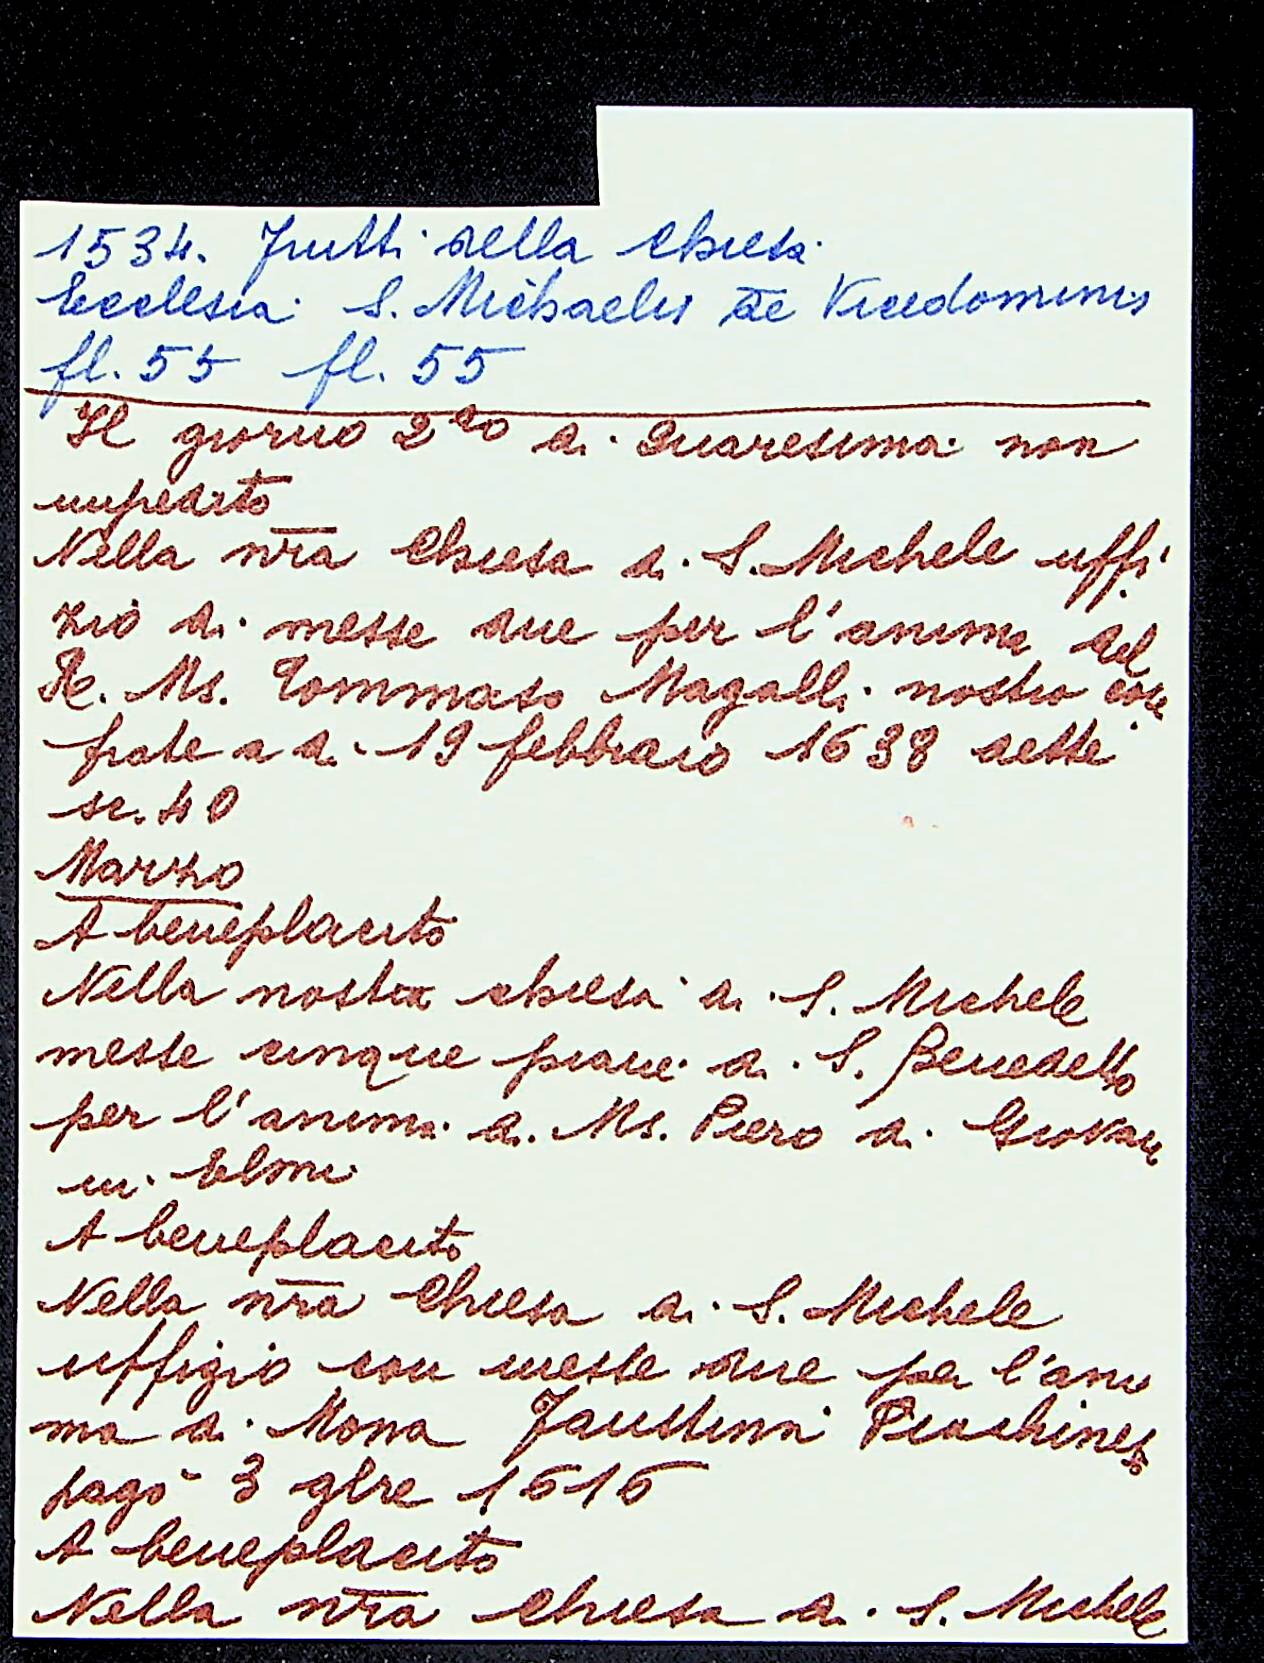 1534. Frutti della chiesa
Ecclesia S. Michaelis de Vicedominis
fl. 55 fl. 55
Il giorno 2do di Quaresima non
impedito
Nella nr̄a Chiesa di S. Michele uffi
zio di messe due per l'anima del
R. Ms. Tommaso Magalli nostro con
frate a di 19 febbraio 1638 dette
sc. 40
Marzo
A beneplacito
Nella nostra chiesa di S. Michele
messe cinque piane di S. Benedetto
per l'anima di Ms. Piero di Giovan
ni Elmi
A beneplacito
Nella nr̄a Chiesa di S. Michele
uffizio con messe due per l'ani
ma di Mona
pagò 3 9bre 1616
A beneplacito
Nella nr̄a Chiesa di S. Michele